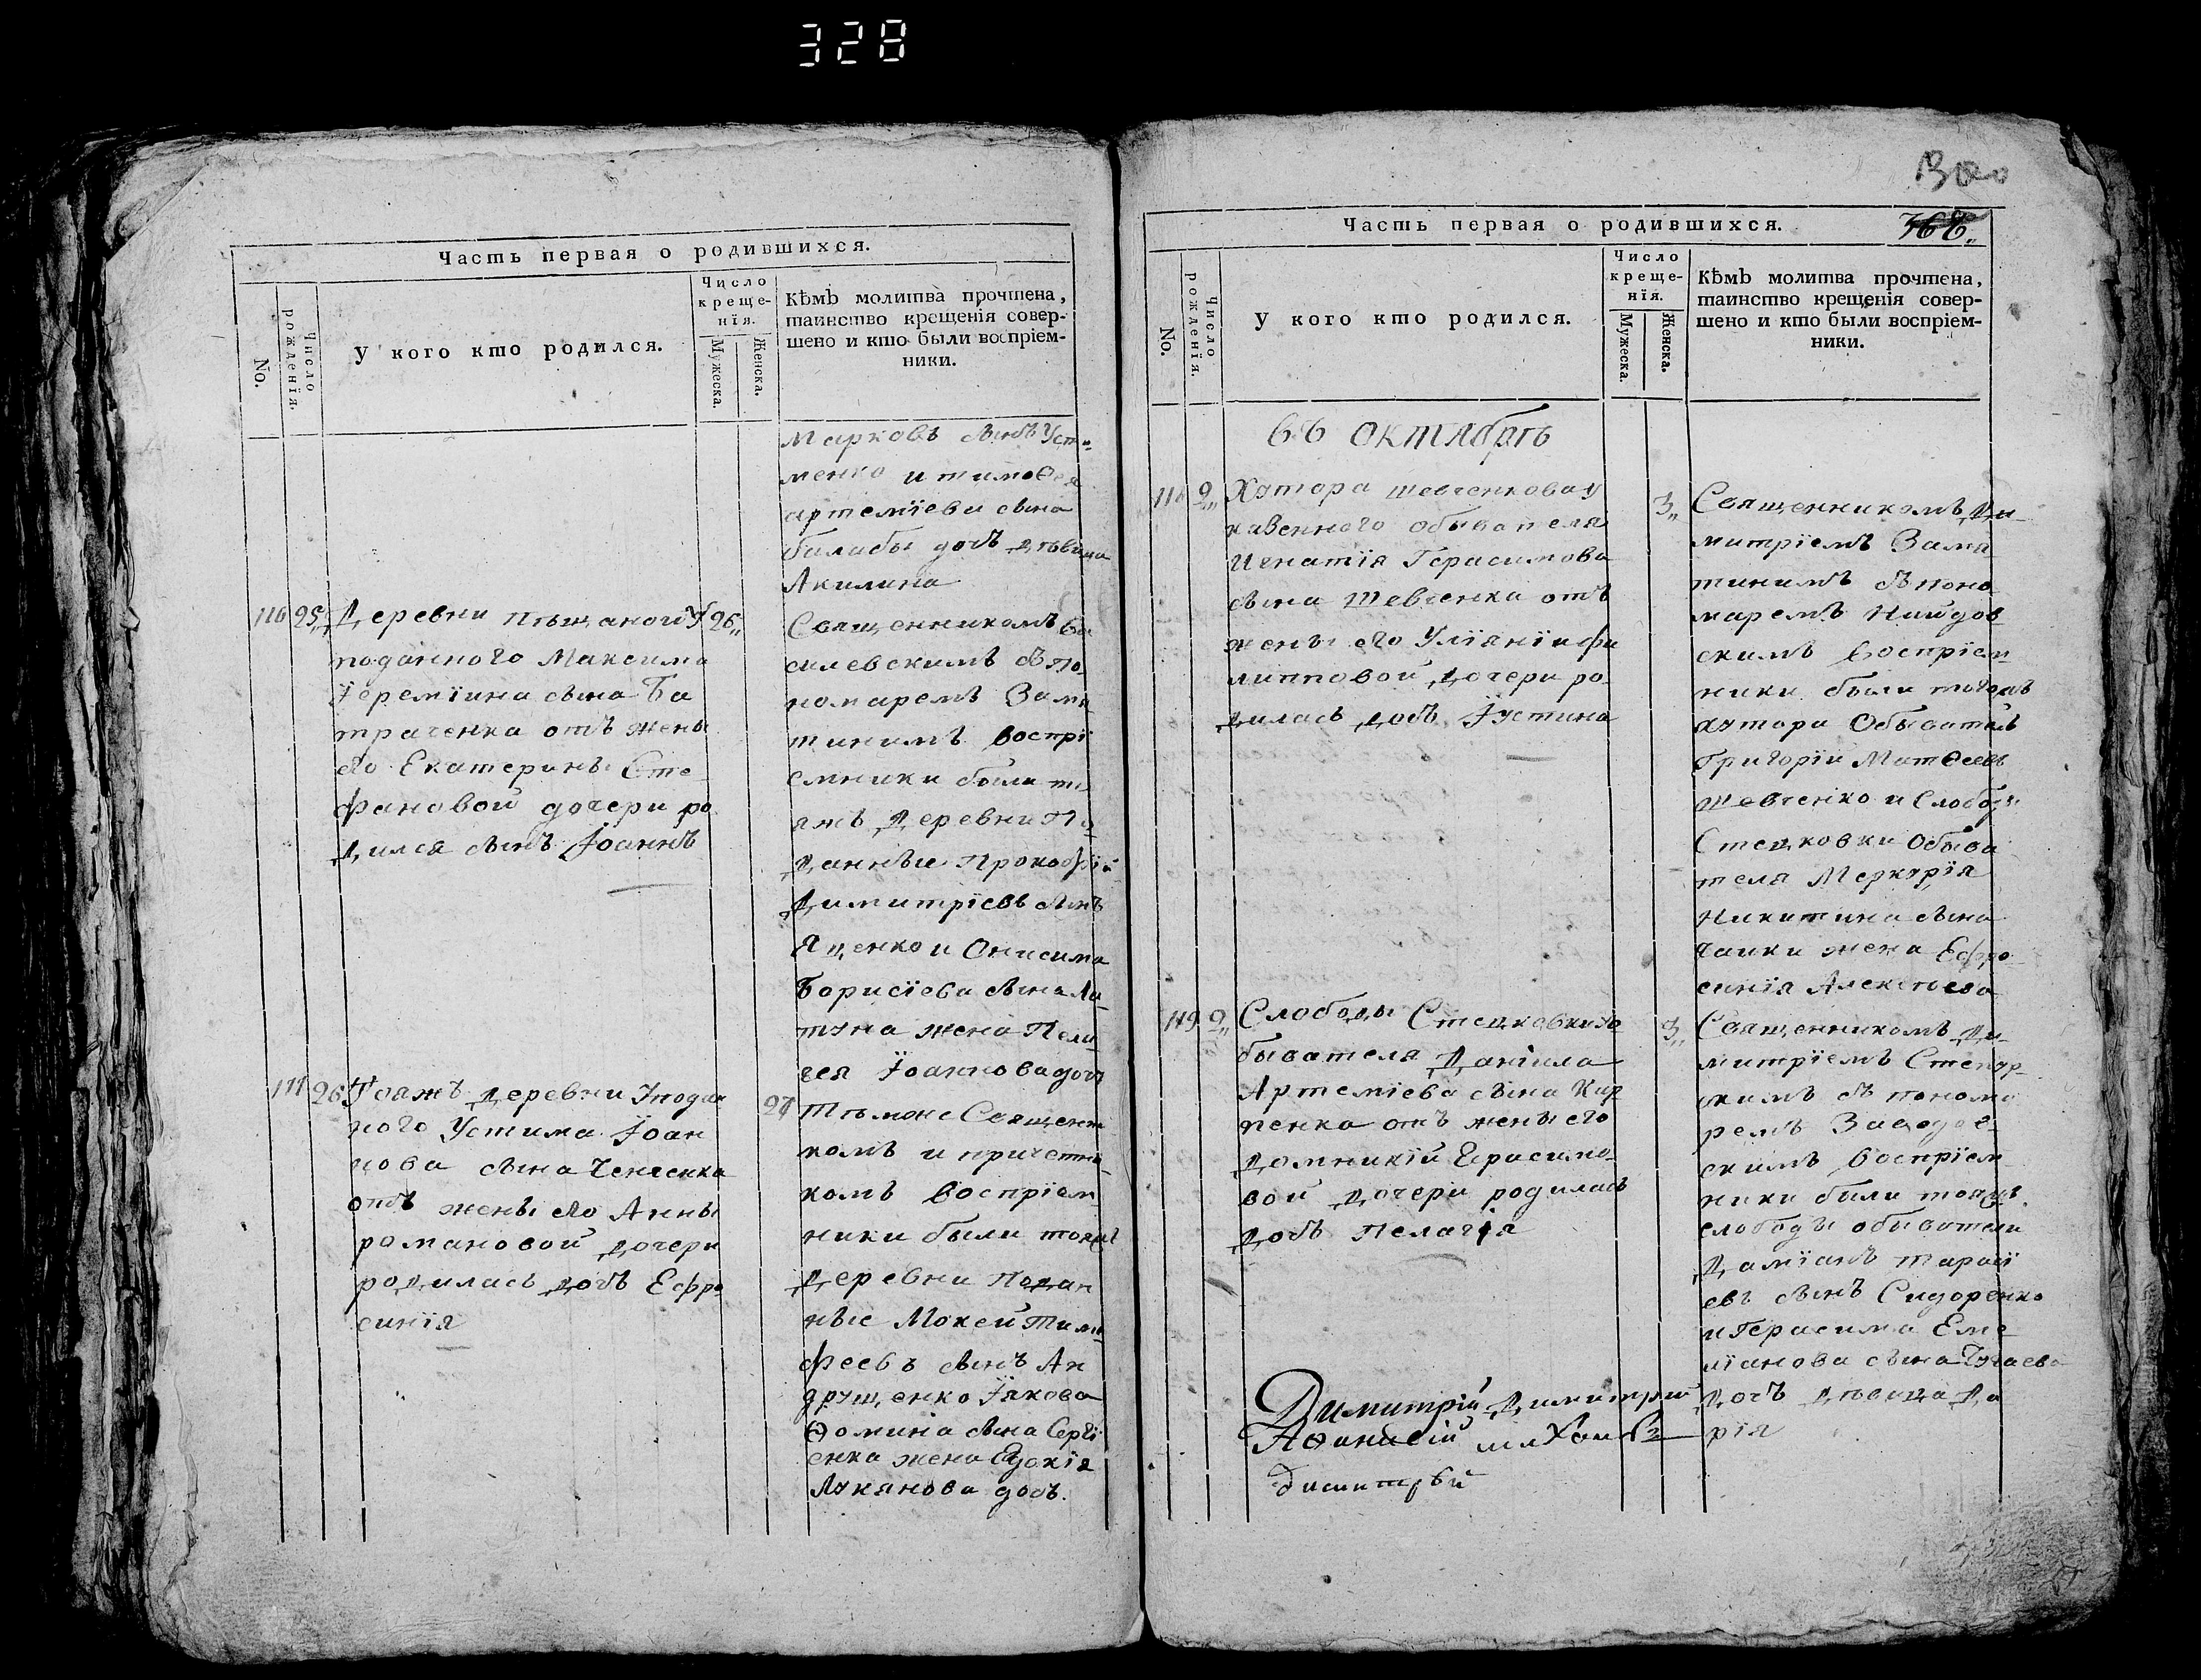 328
Часть первая о родившихся.
No.
Число рожденїя.
У кого кто родился.
Число креще-
нїя.
Мужеска.
Женска.
Кѣмъ молитва прочтена,
таинство крещенїя совер-
шено и кто были воспрїем-
ники.
Марковъ сынъ Уст
менко и тимоѳея
артемїева сына
балабы дочь дѣвица
Акилина
116 25 Деревни Пѣщаной У
поданного Максима
Їеремїина сына Ба
траченка отъ жены
его Екатерины Сте
фановой дочери ро
дился сынъ Їоаннъ
26
Священникомъ Ва
силевскимъ съ по
номаремъ Замя
тинимъ воспрї
емники были то
яжъ деревни По
данные Прокофїй
Димитрїевъ сынъ
Яценко и Онисима
Борисїева сына Ла
туна жена Пела
гея Їоаннова дочь
117 26 Тояжъ деревни У подан
ного Устима Їоан
нова сына
отъ жены его Анны
романовой дочери
родилась дочь Ефро
синїя
27
Тѣмже Священи
комъ и причетни
комъ воспрїем
ники были тояжъ
деревни Подан
ные Мокей Тимо
феевъ сынъ Ан
друщенко Їякова
Ѳомина сына Сергї
енка жена Евдокїя
Лукянова дочь.
Часть первая о родившихся.
No.
Число рожденїя.
У кого кто родился.
Число
креще-
нїя.
Мужеска.
Женска.
Кѣмъ молитва прочтена,
таинство крещенїя совер-
шено и кто были воспрїем-
ники.
въ октябрѣ
118 2 Хутора шевченкова у
казенного обывателя
Игнатїя Герасимова
сына Шевченка отъ
жены его Улїянїи фи
липповой дочери ро
дилась дочь Їустина
3
Священникомъ Ди
митрїемъ Замя
тинимъ съ поно
маремъ
скимъ воспрїем
ники были тогожъ
хутора Обыватель
Григорїй Матѳеевъ
Шевченко и Слободы
Стецковки Обыва
теля Меркурїя
Никитина сына
Чайки жена Ефро
синїя Алексѣева
119 2 Слободы Стецковки у о
бывателя Данїила
Артемїева сына Кир
пенка отъ жены его
Домникїи Герасимо
вой дочери родилась
дочь Пелагїя
3
Священникомъ Ди
митрїемъ
скимъ съ понома
ремъ
скимъ воспрїем
ники были тояжъ
слободы обыватели
Дамїанъ тарасї
евъ сынъ Сидоренко
и Герасима Еме
лїанова сына
дочь дѣвица Да
рїя
Димитрїй Димитрїй
Аѳанасїй